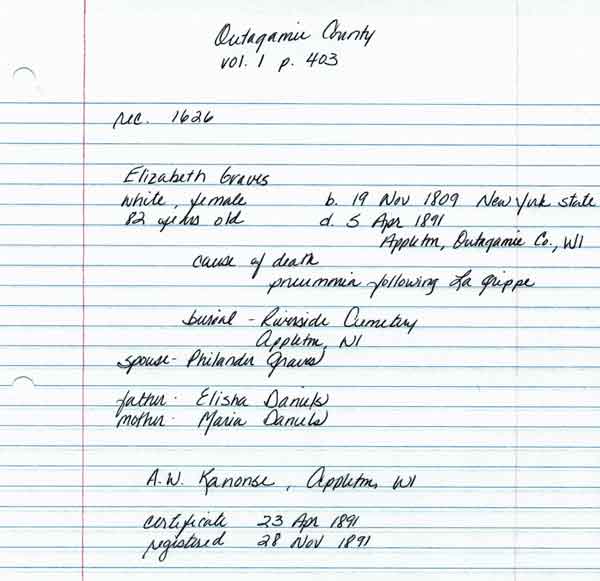 Outagamie County
vol. 1 p. 403
rec. 1626
Elizabeth Graves
white, female b. 19 Nov 1809 New York state
82 years old d. 5 Apr 1891
Appleton, Outagamie Co., WI
cause of death
pneumonia following La Grippe
burial - Riverside Cemetery
Appleton, WI
spouse - Philander Graves
father - Elisha Daniels
mother - Maria Daniels
A.W. Kanonse, Appleton, WI
certificate 23 Apr 1891
registered 28 Nov 1891